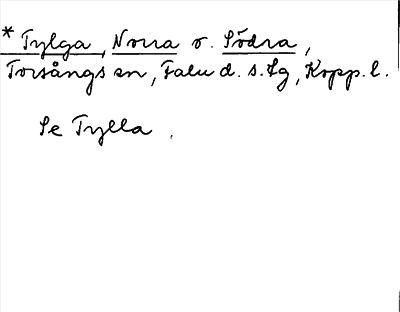 * Tylga, Norra o. Södra,
Torsångs sn, Falu d. s. lg, Kopp. l.
Se Tylla.